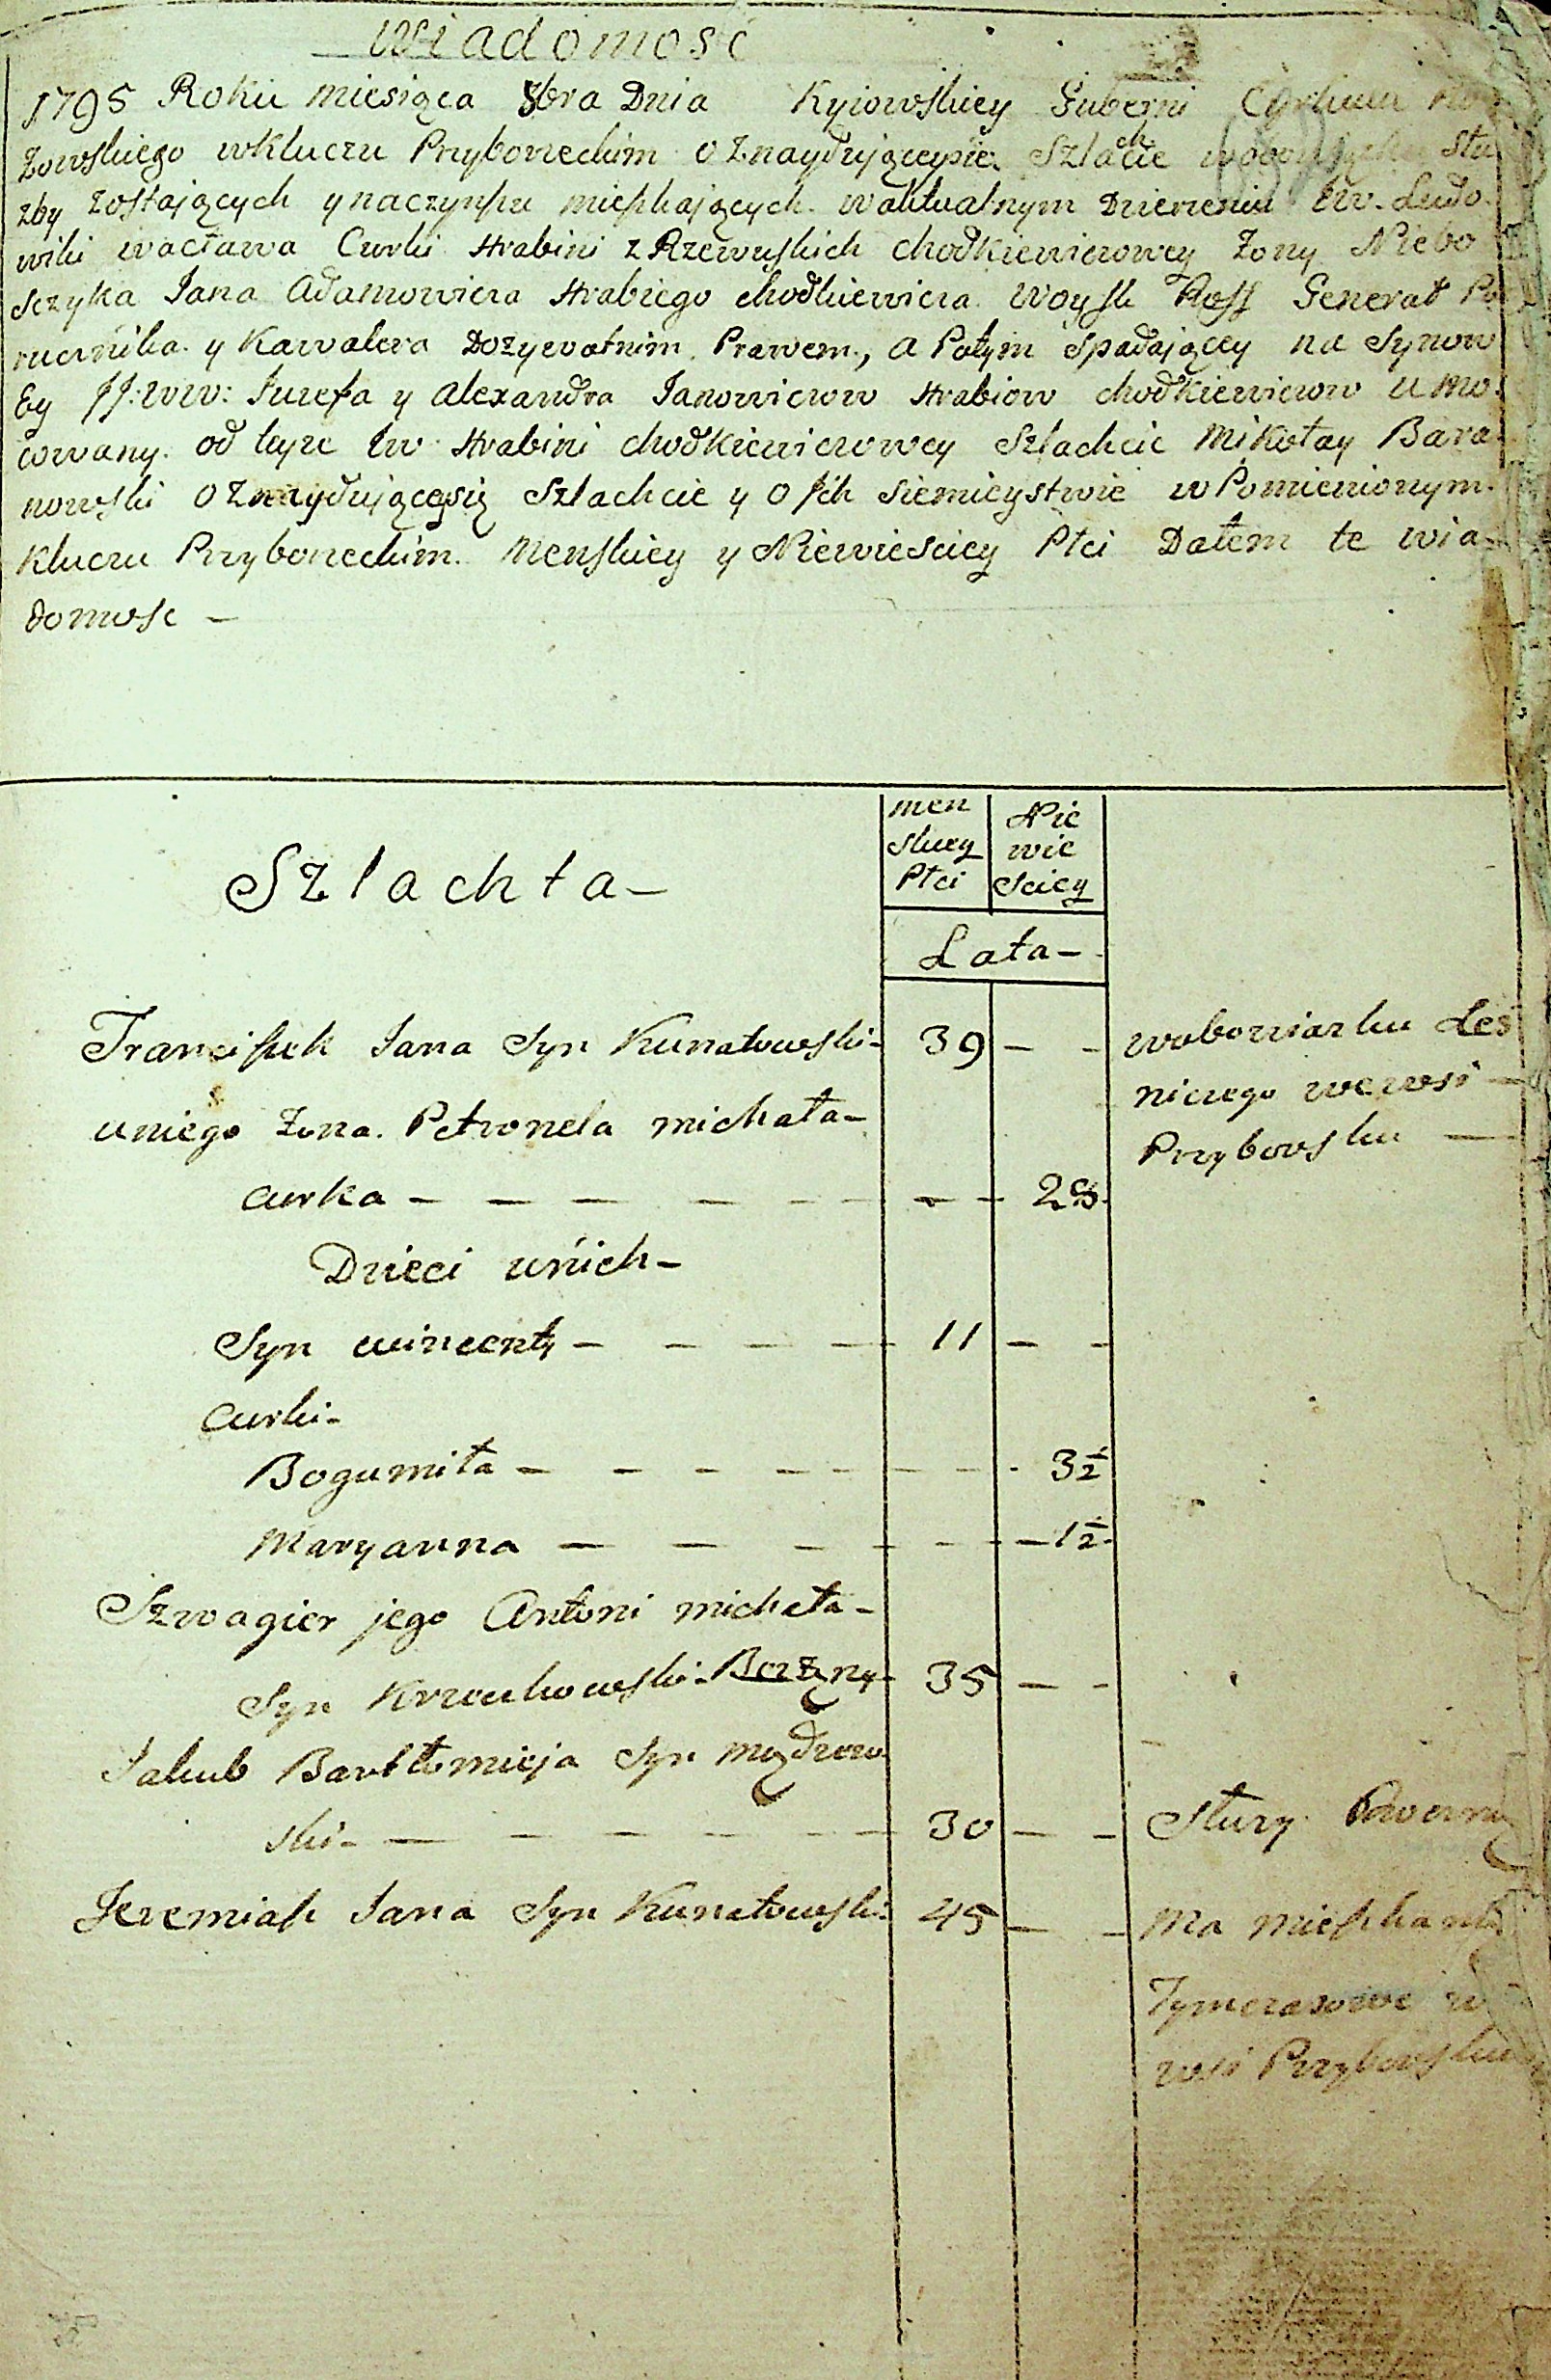 Wiadomosc
1795 Roku miesiąca 8bra Dnia Kyiowskiey Guberni Cyrkułu
Zowskiego wkluczu Przyboreckim o Znaydujączeysie Szlachcie słu
zby Zostających y naczynszu mieszkających. waktualnym Dzierzeniu Jw. Ludo-
wiki wacława Curki Hrabini z Rzewuskich chodkiewiczowey Zony Niebo
sczyka Jana Adamowicza Hrabiego chodkiewicza Woysk Ross Generał Po
rucznika y Kawalera Dozyvotnim Prawem, a Potym Spadającey na Synow
Ey JJ:ww: Juzefa y Alexandra Janowiczow Hrabiow chodkiewiczow umo-
cowany od teyze Jw Hrabini chodkiewiczowey Szlachcic Mikołay Bara-
nowski o Znaydującęsię Szlachcie y o Jch Siemieystwie w Pomienionym
Kluczu Przyboreckim. Menskiey y Niewiesciey Płci Dałem te wia-
domosc –
Szlachta–
men
skiey
Płci
Nie
wie
sciey
Lata–
Franciszek Jana Syn Kunatowski– 39 – – wobowiazku Leś
niczego we wsi –
uniego Zona. Petronela michała–
Przyborsku —
curka – – – – – – – 28.
Dzieci unich–
Syn wincenty – – – – 11 – –
Curki–
Bogumiła – – – – – – – 3½
Maryanna – – – – – – 1½.
Szwagier jego Antoni michała–
Syn Krzczukowski– Bezżęny– 35 – –
Jakub Bartłomieja Syn mądrow
ski– – – – – – 30 – – Słuzy
Jeremiasz Jana Syn Kunatowski: 45 – – Ma mieszkani
Tymczasowe w
wsi Przyborsku